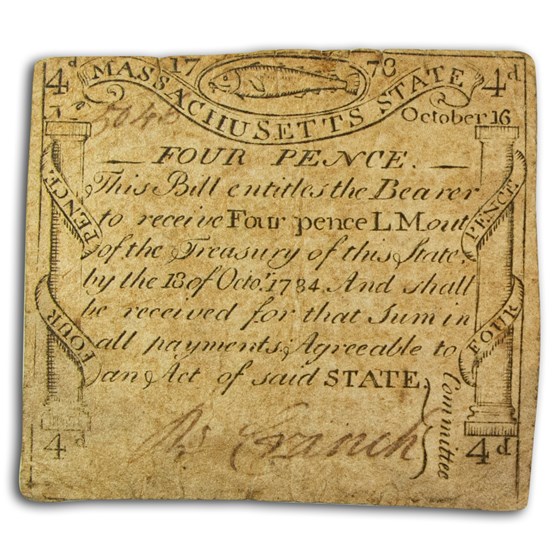 4d 17 78 4d
MASSACHUSETTS STATE
5048 October 16
FOUR PENCE.
This Bill entitles the Bearer
to receive Four pence LM out
of the Treasury of this State.
by the 18 of Octor. 1784. And shall
be received for that Sum in
all payments, Agreeable to
an Act of said STATE.
PENCE.
FOUR
PENCE
FOUR
Rd Cranch
Committee
4d 4d